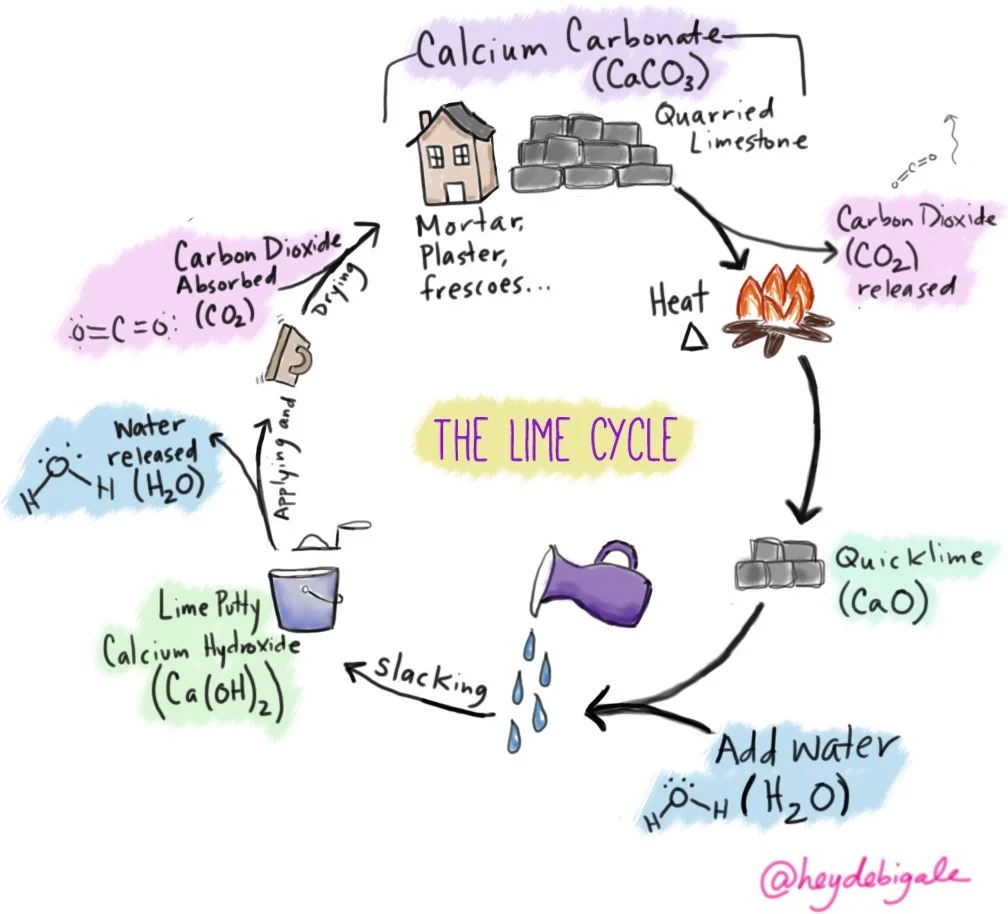 Calcium Carbonate
(CaCO₃)
Quarried
Limestone
Mortar,
Plaster,
frescoes...
O=C=O
Carbon Dioxide
(CO₂)
released
Heat
△
THE LIME CYCLE
Quicklime
(CaO)
Add water
(H₂O)
H O H
slacking
Lime Putty
Calcium Hydroxide
(Ca(OH)₂)
Water
released
(H₂O)
H O H
Applying and
Drying
Carbon Dioxide
Absorbed
(CO₂)
:O=C=O:
@heydebigale